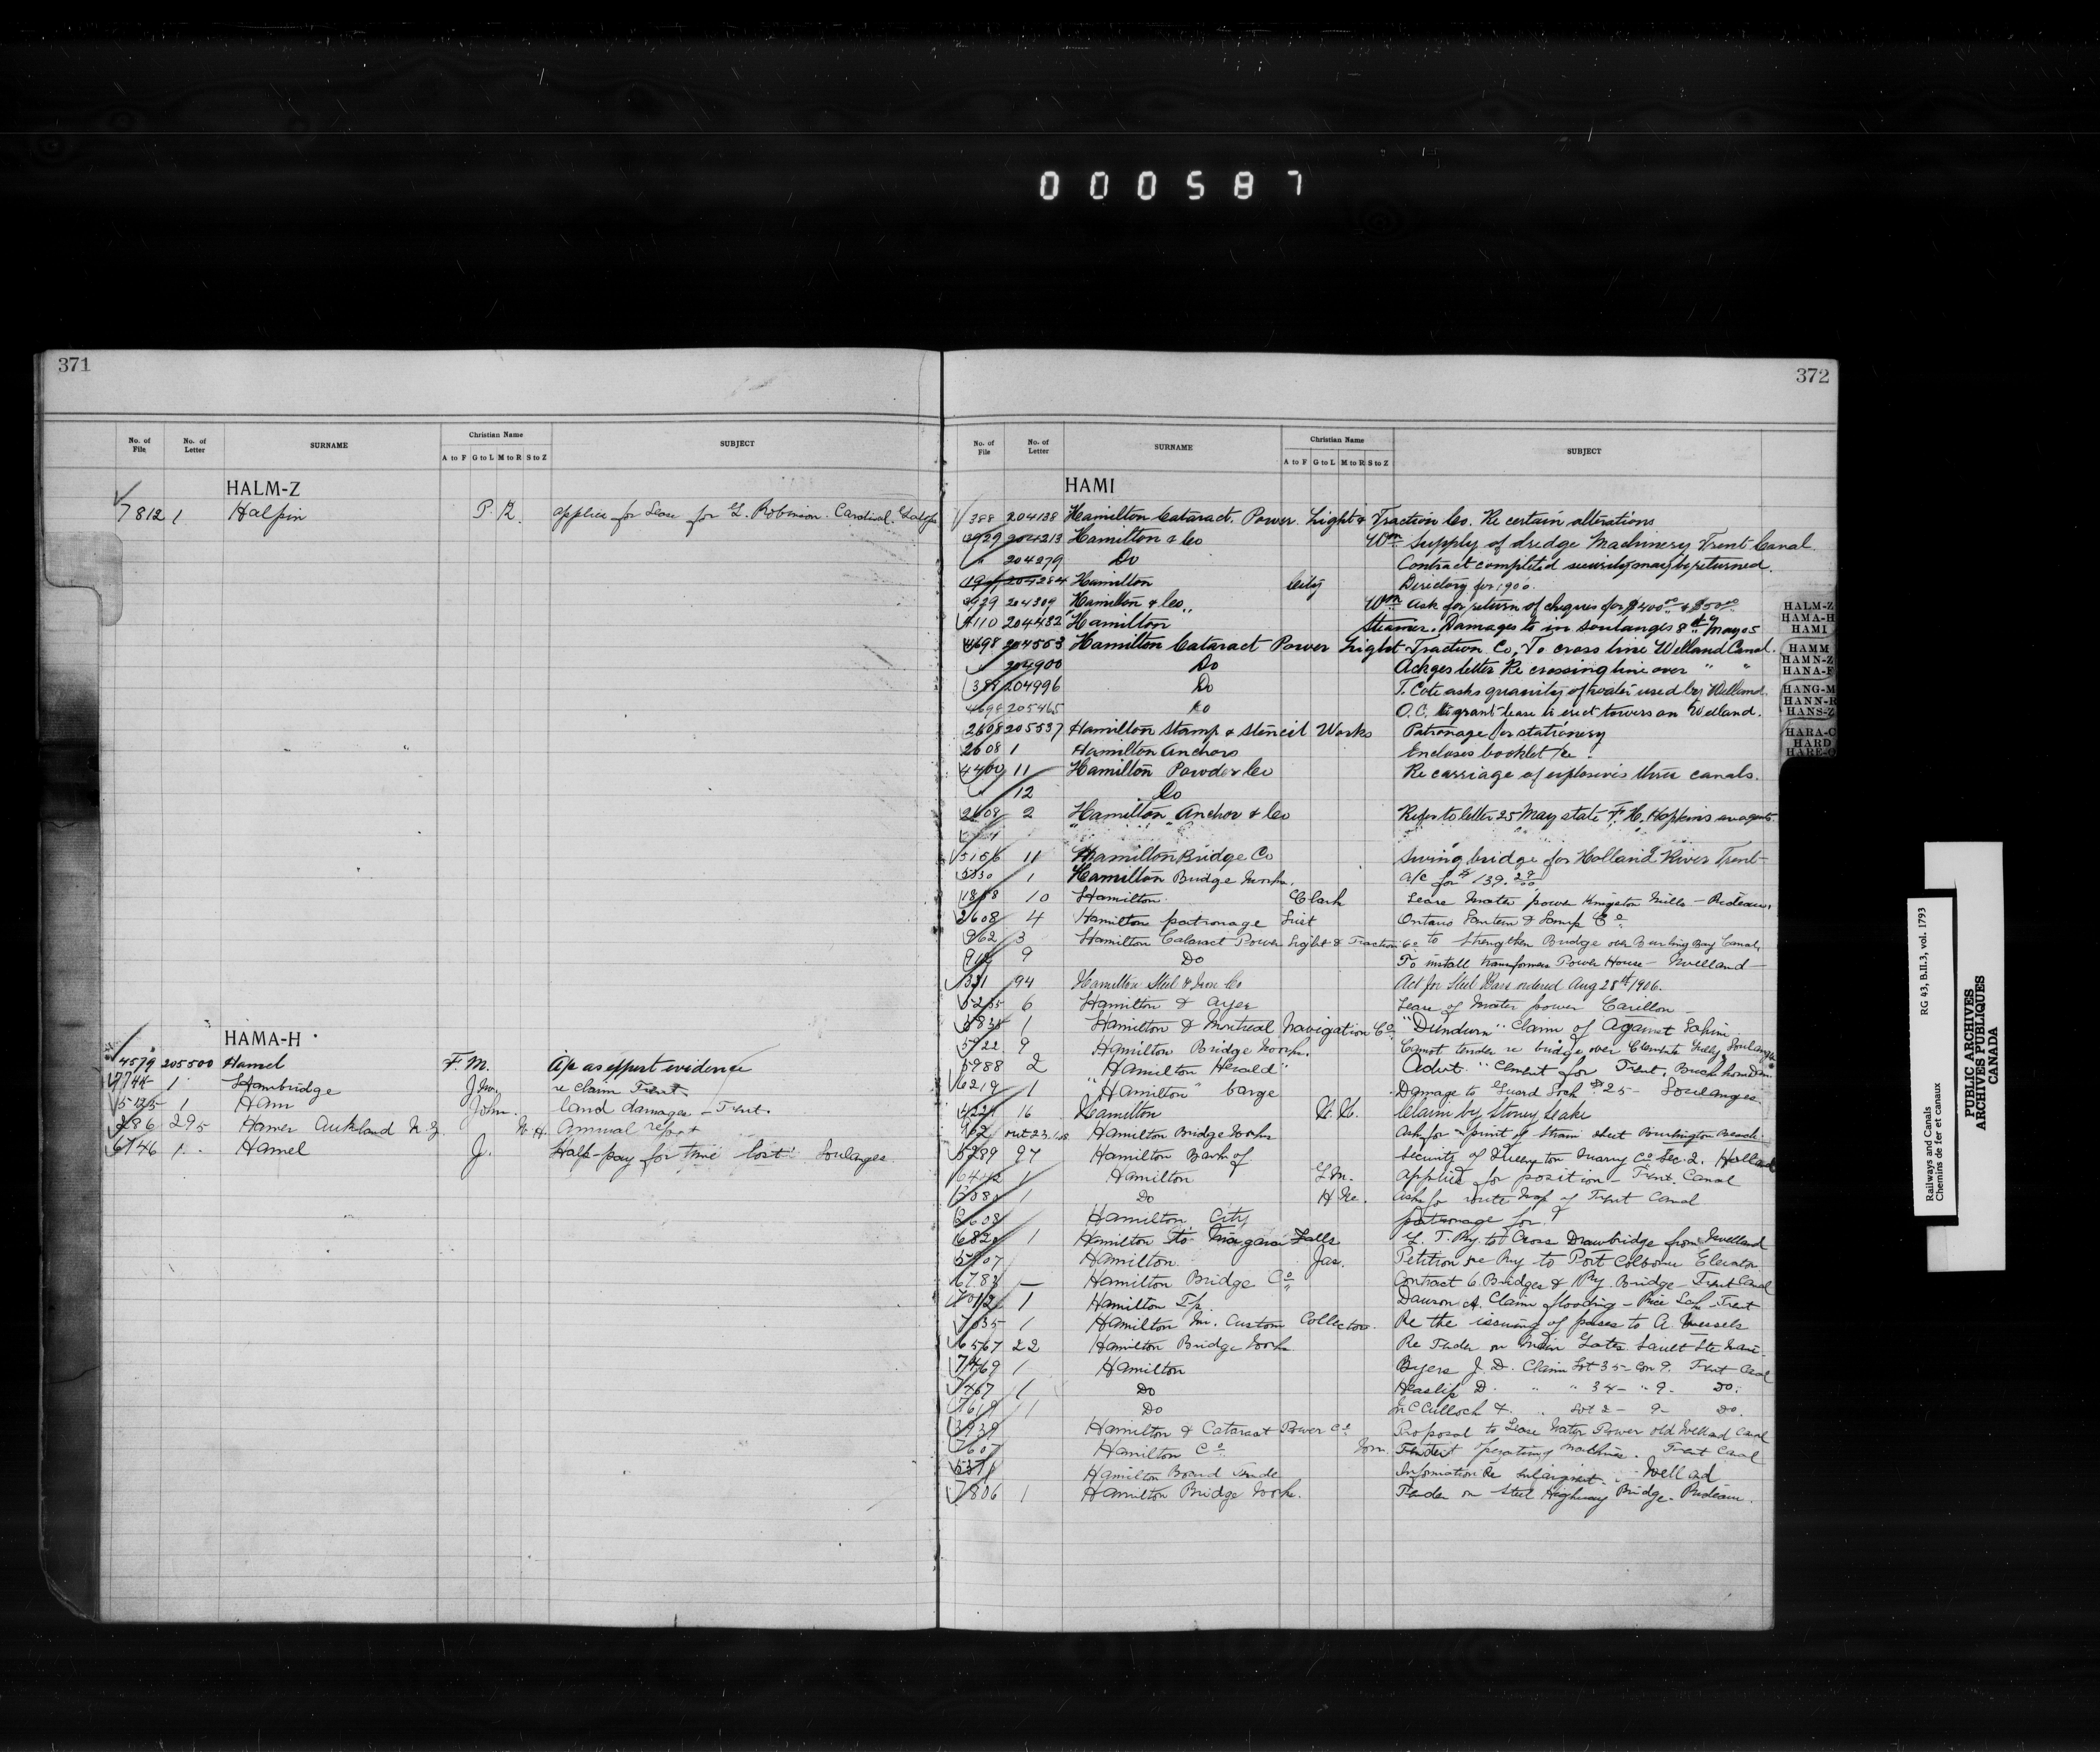 000587
371
No. of File No. of Letter SURNAME Christian Name SUBJECT
A to F G to L M to R S to Z
HALM-Z
7812 1 Halpin P. R. applies for Lease for G. Robinson. Cardinal.
HAMA-H
4579 205500 Hamel F. M. A/c as expert evidence
7744 1 Hambridge Jno. re claim Trent
5125 1 Ham John. land damages - Trent.
286 295 Hamer Aukland N. Z. W. H. Annual report
6746 1 Hamel J. Half-pay for time lost Soulanges
372
No. of File No. of Letter SURNAME Christian Name SUBJECT
A to F G to L M to R S to Z
HAMI
388 204138 Hamilton Cataract. Power. Light & Traction Co. Re certain alterations
3929 204213 Hamilton & Co Wm Supply of dredge Machinery Trent Canal.
" 204279 Do Contract completed security may be returned.
204284 Hamilton City Directory for 1906.
3929 204309 Hamilton & Co. Wm Ask for return of cheques for $400.00 & $50.00
4110 204432 Hamilton Steamer. Damages to in Soulanges 8th May 05
4698 204553 Hamilton Cataract Power Light Traction Co, To cross line Welland Canal.
204900 Do Ackges letter Re crossing line over " "
388 204996 Do T. Cote asks quanity of water used by Welland.
4698 205465 Do O.C. to grant lease to erect towers on Welland.
2608 205537 Hamilton Stamp & Stencil Works Patronage for stationery
2608 1 Hamilton Anchors Encloses booklet re
4400 11 Hamilton Powder Co Re carriage of explosives thru canals.
" 12 Do
2608 2 Hamilton Anchor & Co Refer to letter 25 May state F. H. Hopkins as agents
5156 11 Hamilton Bridge Co Swing bridge for Holland River Trent
5330 1 Hamilton Bridge Works. a/c for $139.
1858 10 Hamilton Clark Lease Water power Kingston Mills - Rideau.
2608 4 Hamilton patronage List Ontario Lantern & Lamp Co
962 3 Hamilton Cataract Power Light & Traction Co to strengthen Bridge over Burling Bay Canal,
9 Do To install transformers Power House - Welland
94 Hamilton Steel & Iron Co Act for Steel Bars ordered Aug 28th/1906.
5255 6 Hamilton & Ayer Lease of Water power Carillon
5835 1 Hamilton & Montreal Navigation Co. "Dundurn" Claim of Against
5922 9 Hamilton Bridge Works. Cannot tender re bridge over Soulanges
5988 2 "Hamilton Herald" Advt. "Cement for Trent,
6219 1 "Hamilton" barge Damage to Guard Lock #25 - Soulanges.
16 Hamilton Claim by Stoney Lake
962 Hamilton Bridge Works Ask for print of strain sheet Burlington Beach
5289 97 Hamilton Bank of Security of Quarry Co. Sec. 2. Holland
1 Hamilton G. M. Applies for position - Trent. Canal
1 Do H Mc. asks for route map of Trent Canal
2608 Hamilton City patronage for
682 1 Hamilton to Niagara Falls Ry. to Cross Drawbridge from Welland
5907 Hamilton Jas. Petition re Ry to Port Colborne Elevator
6783 — Hamilton Bridge Co Contract 6 Bridges & Ry. Bridge - Trent Canal
7012 1 Hamilton Tp. Dawson A. Claim flooding - Rice Lake - Trent
7035 1 Hamilton M. Custom Collector. Re the issuing of passes to A. Vessels
6567 22 Hamilton Bridge Works Re Tender on Main Gates Sault Ste Marie
7469 1 Hamilton Byers J. D. Claim Lot 35 - Con 9. Trent Canal
7467 1 Do Heaslip D. " " 34 - " 9 - Do.
7619 1 Do McCulloch Lot 2 - 9 - Do.
Hamilton & Cataract Power Co Proposal to Lease Water Power old Welland Canal
7607 Hamilton Co Wm. Tender operating machines. Trent Canal
Hamilton Board Trade Information Re Enlargement - Welland
7806 1 Hamilton Bridge Works. Tender on Steel Highway Bridge - Rideau.
HALM-Z
HAMA-H
HAMI
HAMM
HAMN-Z
HANA-F
HANG-M
HANN-R
HANS-Z
HARA-C
HARD
Railways and Canals RG 43, B.II.3, vol. 1793
Chemins de fer et canaux
PUBLIC ARCHIVES
ARCHIVES PUBLIQUES
CANADA